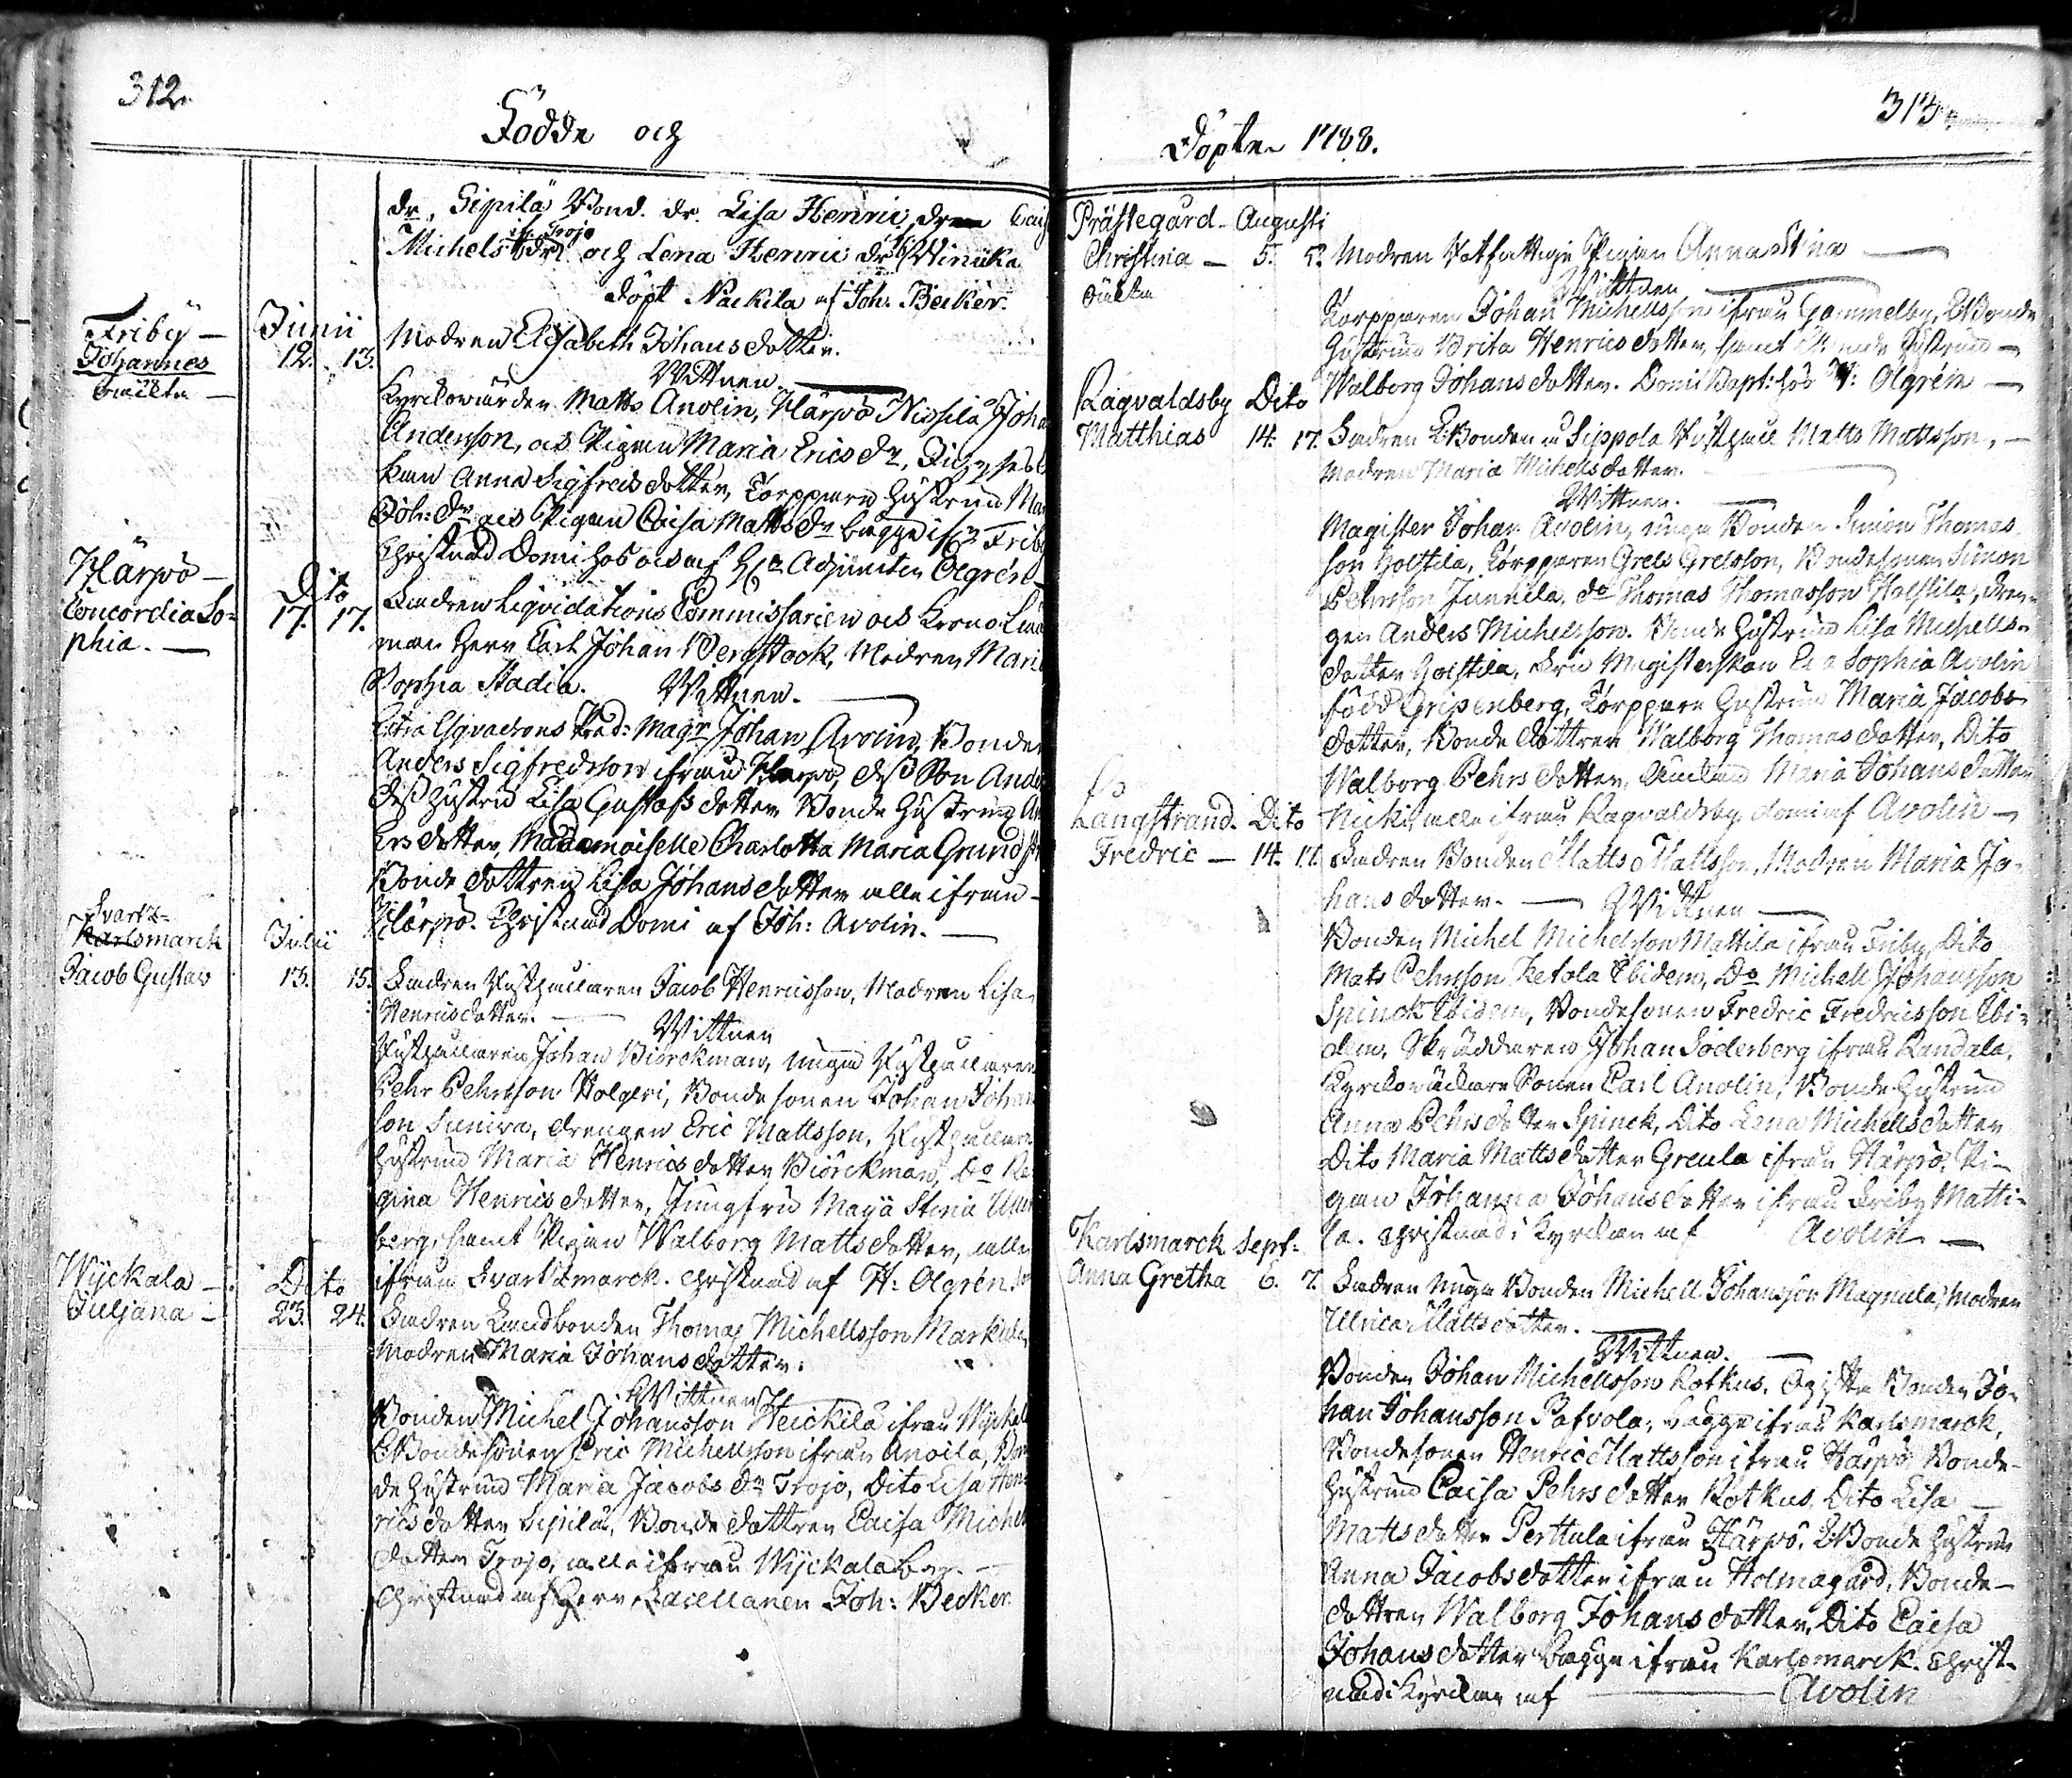 312.
Födde och
dr, Sipilä Bond. dr. Lisa Henrics drn Cais
ifr. Trojo
Michels dr och Lena Henrics dr Winiika
döpt Nackila af Joh: Becker.
Friby — Junii
Johannes 12. 13. Modren Elisabeth Johansdotter.
oäckta —
Wittnen.
Kyrckowärden Matts Anolin, Härpö Nissilä Joha
Andersson, och Pigan Maria Erics dr,
kan Anna Sigfredsdotter, Torpparen Hustrun Mar
Joh: dr och Pigan Caisa Matts dr bägge ifrn Frib
Christnad Domi hos och af Hr Adjuncten Olgrén
Härpö — Dito
Concordia So- 17. 17. Fadren Liqvidations Commissarien och Krono Län
phia. —
man Herr Carl Johan Bergstock, Modren Maria
Sophia Stadia. Wittnen.
Extra Esqvadrons Pred: Magr Johan Avolin, Bonden
Anders Sigfredsson ifrån Härpö, dess Son Ande
dess Hustru Lisa Gustafsdotter Bonde Hustrun An
Ersdotter, Mademoiselle Charlotta Maria Grundst
Bondedottren Lisa Johansdotter alla ifrån
Härpö. Christnad Domi af Joh: Avolin. —
Svartz-
Karlsmarck Julii
Jacob Gustav 13. 15. Fadren Rusthållaren Jacob Henricsson, Modren Lisa
Henricsdotter.
Wittnen
Rusthållaren Johan Biörckman, unga Rusthållaren
Pehr Pehrsson Holgeri, Bondesonen Johan Johan
son Junira, drengen Eric Mattsson, Rusthållare
Hustrun Maria Henricsdotter Biörckman, Do Re
gina Henricsdotter, Jungfru Maja Stina
berg, samt Pigan Walborg Mattsdotter, alla
ifrån Svartzmarck. Christnad af H: Olgrén.
Wÿckala — Dito
Juljana — 23. 24. Fadren Landbonden Thomas Michellsson Markula
Modren Maria Johansdotter.
Wittnen
Bonden Michel Johansson Heickilä ifrån Wÿckala
Bondesonen Eric Michellsson ifrån Anoila, Bon
de Hustrun Maria Jacobs dr Trojo, Dito Lisa Hen
ricsdotter Sipilä, Bondedottren Caisa Michels
dotter Trojo, alla ifrån Wÿckala by. —
Christnad af Herr Cacellanen Joh: Becker.
313
Döpte 1788.
Prästegård. Augusti
Christina — 5. 5. Modren Utfattige Pigan Anna Stina —
oäckta
Wittnen
Torpparen Johan Michellsson ifrån Gammelby, Bonde
Hustrun Brita Henricsdotter, samt Bonde Hustrun —
Walborg Johansdotter. Domi Bapt: hos H: Olgrén —
Ragvaldsby Dito
Matthias 14. 17. Fadren Bonden å Sippola Rusthåll Matts Mattsson, —
Modren Maria Michellsdotter.
Wittnen.
Magister Johan Avolin, unga Bonden Simon Thomas
son Holstila, Torpparen Grels Grelsson, Bondesonen Simon
Pehrsson Junnila, do Thomas Thomasson Holstila, dren-
gen Anders Michelsson. Bonde Hustrun Lisa Michells-
dotter Holstila, Fru Magisterskan Eva Sophia Avolin
född Gripenberg, Torppare Hustrun Maria Jacobs
dotter, Bonde dottren Walborg Thomasdotter, Dito
Walborg Pehrsdotter, Maria Johansdotter
Nicki, alla ifrån Ragvaldsby, domi af Avolin —
Langstrand. Dito
Fredric — 14. 17. Fadren Bonden Matts Mattsson, Modren Maria Jo-
hansdotter. — Wittnen —
Bonden Michel Michelsson Mattila ifrån Friby, Dito
Mats Pehrsson Ketola Ibidem, Do Michell Johansson
Spinck Ibidem, Bondesonen Fredric Fredricsson Ibi-
dem, Skräddaren Johan Söderberg ifrån Randala,
Kyrckowäckare Sonen Carl Anolin, Bonde Hustrun
Anna Pehrsdotter Spinck, Dito Lena Michellsdotter
Dito Maria Mattsdotter Greula ifrån Härpö, Pi-
gan Johanna Johansdotter ifrån Friby Matti-
la. Christnad i Kyrckan af Avolin —
Karlsmarck Sept:
Anna Gretha 6. 7. Fadren unga Bonden Michell Johansson Magnula, Modren
Ulrica Mattsdotter.
Wittnen.
Bonden Johan Michellsson Rotkus, Ogifte Bonden Jo-
han Johansson Pafvola, bägge ifrån Karlsmarck,
Bondesonen Henric Mattsson ifrån Härpö, Bonde-
Hustrun Caisa Pehrsdotter Rotkus, Dito Lisa —
Mattsdotter Perttula ifrån Härpö, Bonde Hustrun
Anna Jacobsdotter ifrån Holmagård, Bonde-
dottren Walborg Johansdotter, Dito Caisa
Johansdotter bägge ifrån Karlsmarck. Christ-
nad i Kyrckan af — Avolin